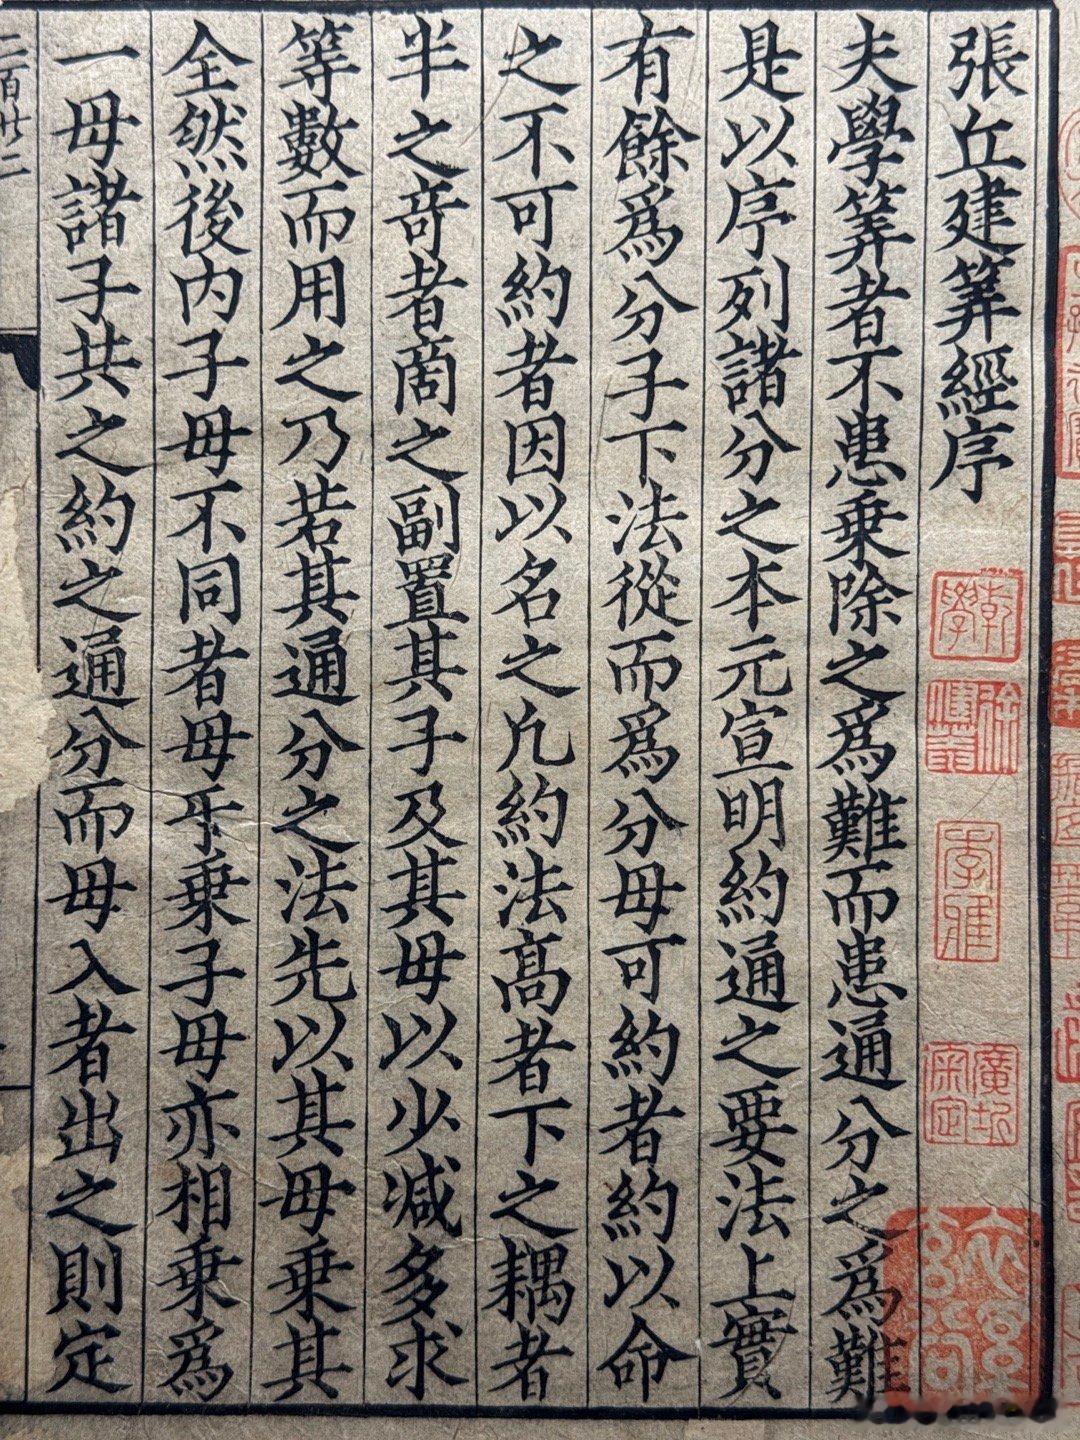 張丘建筭經序
夫學筭者不患乗除之爲難而患通分之爲難
是以序列諸分之本元宣明約通之要法上實
有餘爲分子下法從而爲分母可約者約以命
之不可約者因以名之凢約法髙者下之耦者
半之竒者啇之副置其子及其母以少减多求
等數而用之乃若其通分之法先以其母乗其
全然後内子母不同者母乎乗子母亦相乗爲
一母諸子共之約之通分而母入者出之則定